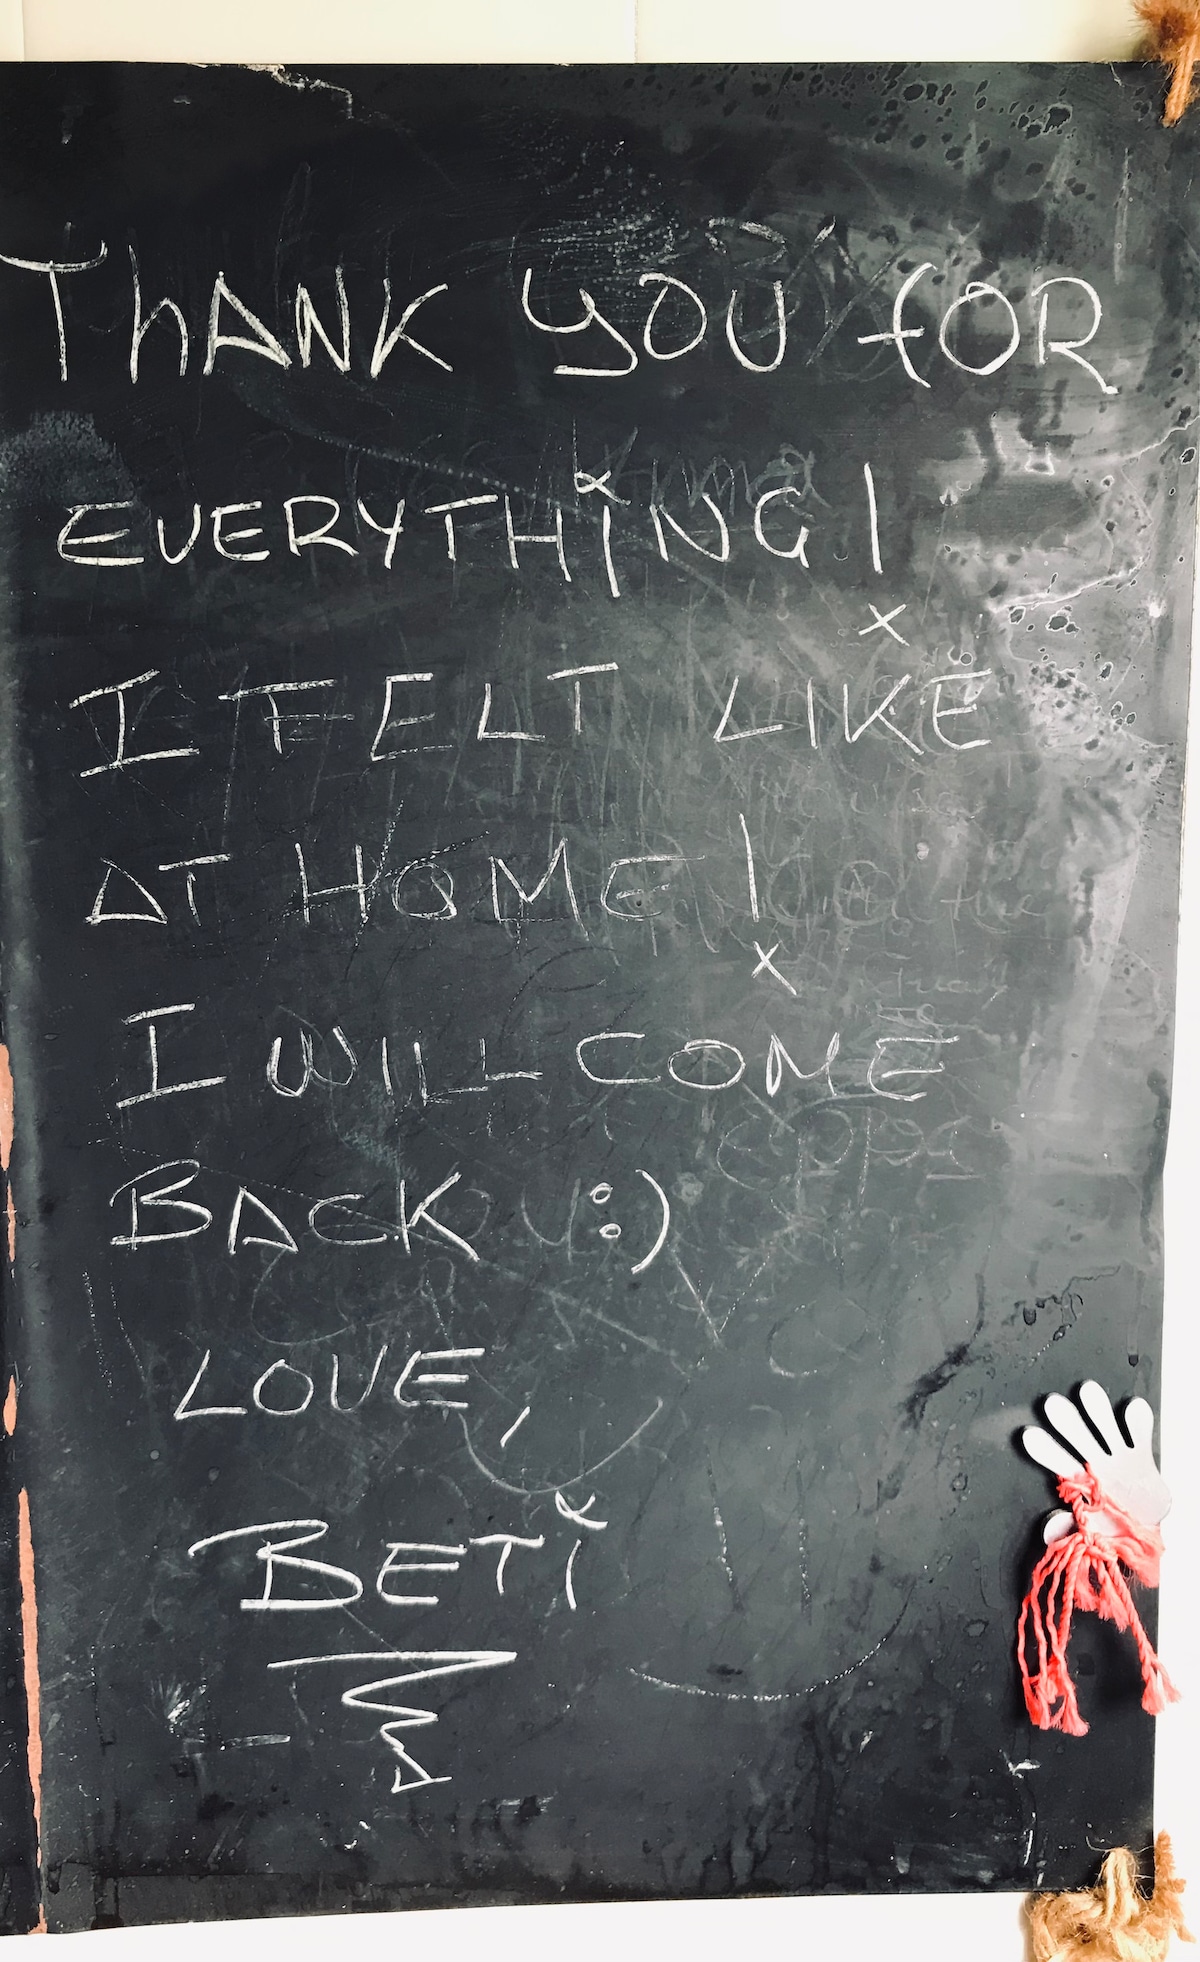 THANK YOU FOR
EVERYTHING!
I FELT LIKE
AT HOME!
I WILL COME
BACK :)
LOVE,
BETI